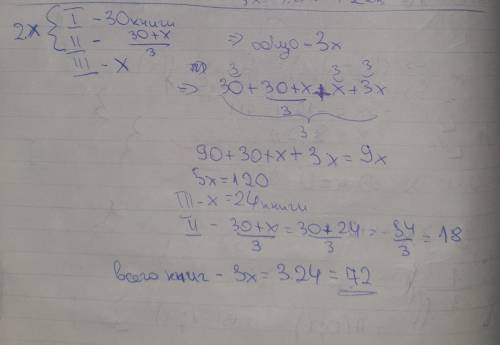 2x { I - 30 книги
II - (30+x)/3 => общо - 3x
III - x
=> 30 + (30+x)/3 + x + 3x
3x
90+30+x+3x=9x
5x=120
III - x=24 книги
II - (30+x)/3 = (30+24)/3 = 54/3 = 18
всего книг - 3x = 3.24 = 72